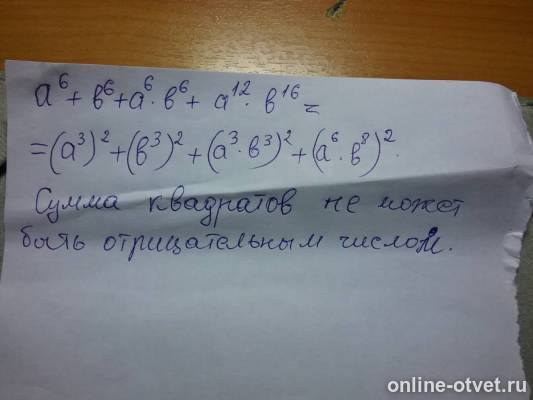 a⁶ + b⁶ + a⁶ · b⁶ + a¹² · b¹⁶ =
= (a³)² + (b³)² + (a³ · b³)² + (a⁶ · b⁸)².
Сумма квадратов не может
быть отрицательным числом.
online-otvet.ru